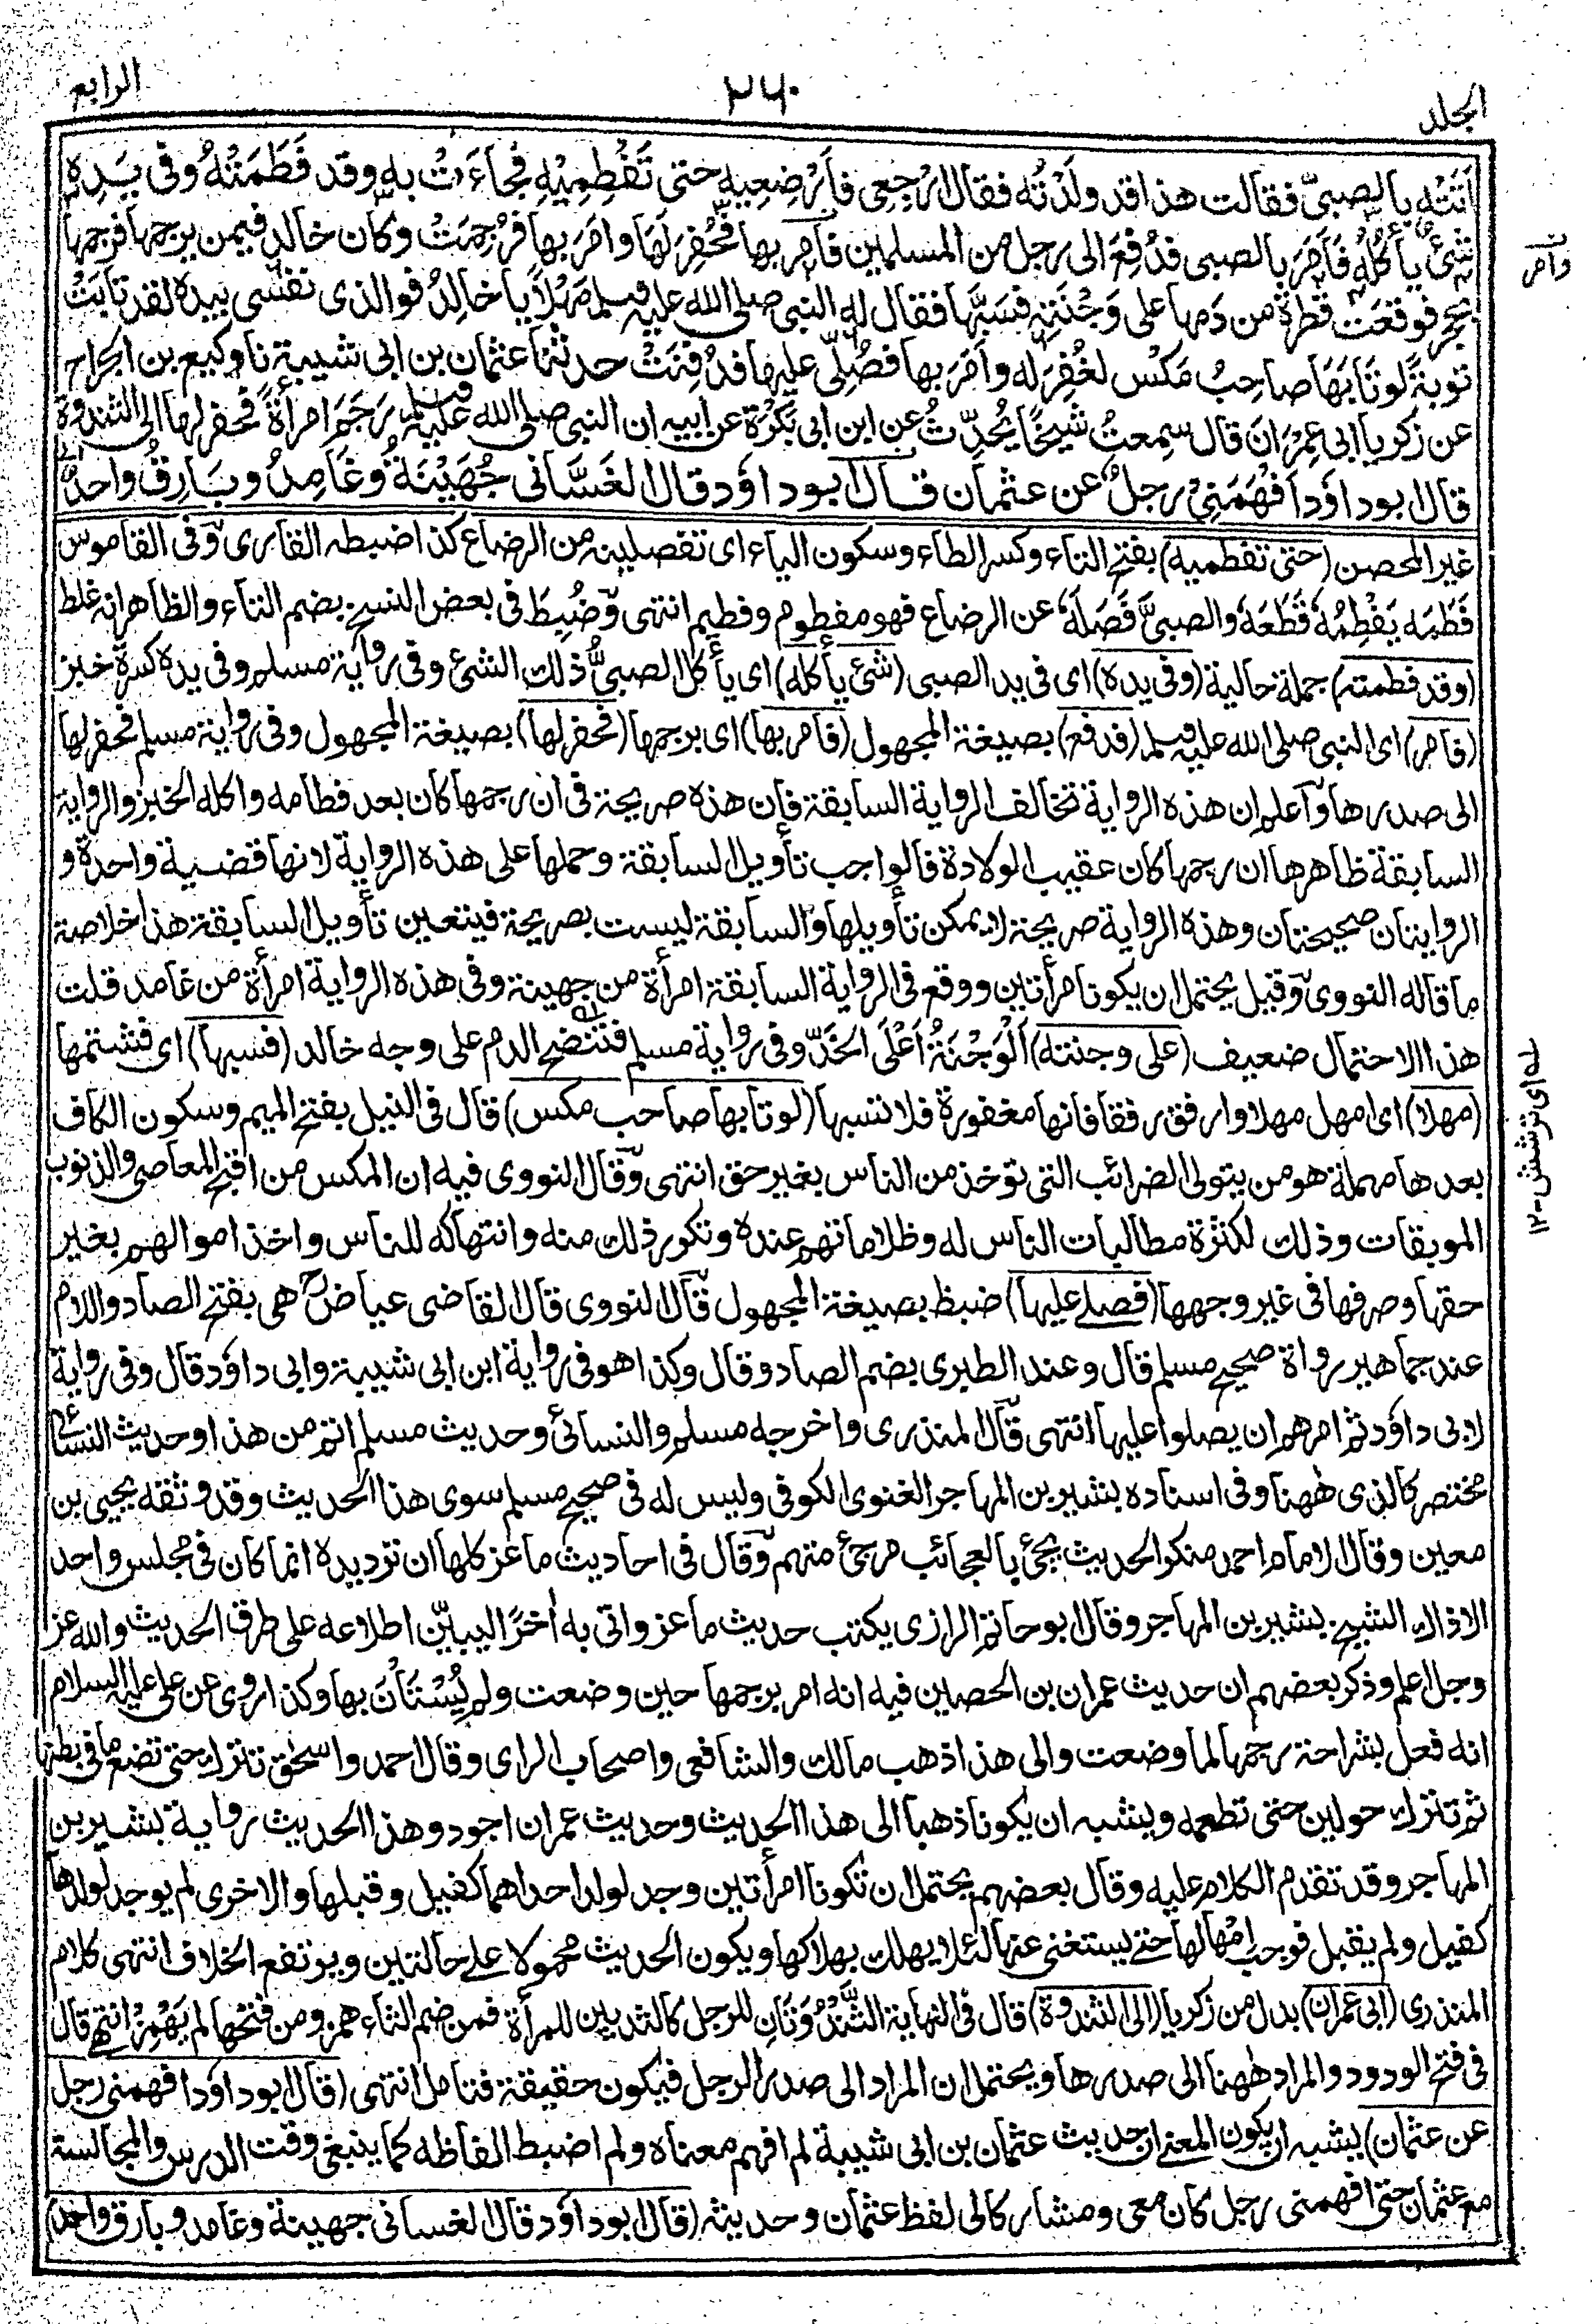 الجلد
٢٦٠
الرابع
اَتَتْهِ بالصبيّ فقالت هذا قد ولَدْتُه فقال ارْجِعِى فاَرْضِعِيهِ حتى تَفْطِمِيْهِ فجاءَتْ به وقد فَطَمَتْهُ وفى يَدِهِ
شئٌ يأكلُه فَاَمَرَ بالصبى فدُفِعَ الى رجل من المسلمين فاَمَر بها فحُفِرَ لَهَا وامَرَ بها فَرُجِمَتْ وكان خالد فيمن يرجمها فرجمها
بحجر فوقعَتْ قطرة من دَمِها على وَجْنَتِه فسَبَّها فقال له النبى صلى الله عليه وسلم مَهْلاً يا خالِدُ فوالذى نفسى بيده لقد تابَتْ
توبةً لو تَابَهَا صاحبُ مَكْس لغُفِرَ له واَمَرَ بها فصُلِّىَ عليها فدُفِنَتْ حدثنا عثمان بن ابى شيبة نا وكيع بن الجراح
عن زكريا ابى عِمْرَانَ قال سمعتُ شيخًا يُحدّثُ عن ابن ابى بَكْرَة عن ابيه ان النبى صلى الله عليه وسلم رَجَمَ امرأةً فحفر لها الى الثندوة
قال ابوداوَد اَفْهَمَنِىْ رجلٌ عن عثمان قال ابوداؤد قال الغَسَّانى جُهَيْنَةُ وغَامِدُ وبَارِقُ واحدٌ
غير المحصن (حتى تفطميه) بفتح التاء وكسر الطاء وسكون الياء اى تفصلينه من الرضاع كذا ضبطه القارى وفى القاموس
فَطَمَه يَفْطِمُه قَطَعَه والصبىَّ فَصَلَه عن الرضاع فهو مفطوم وفطيم انتهى وضُبِطَ فى بعض النسخ بضم التاء والظاهر انه غلط
(وقد فطمته) جملة حالية (وفى يده) اى فى يد الصبى (شئ يأكله) اى يأكل الصبىُّ ذلك الشئ وفى رواية مسلم وفى يده كسرة خبز
(فامر) اى النبى صلى الله عليه وسلم (فدفع) بصيغة المجهول (فامر بها) اى برجمها (فحفر لها) بصيغة المجهول وفى رواية مسلم فحفر لها
الى صدرها واعلم ان هذه الرواية تخالف الرواية السابقة فإن هذه صريحة فى ان رجمها كان بعد فطامه واكله الخبز والرواية
السابقة ظاهرها ان رجمها كان عقيب الولادة فالواجب تأويل السابقة وحملها على هذه الرواية لانها قضية واحدة و
الروايتان صحيحتان وهذه الرواية صريحة لا يمكن تأويلها والسابقة ليست بصريحة فيتعين تأويل السابقة هذا خلاصة
ما قاله النووى وقيل يحتمل ان يكونا مرأتين ووقع فى الرواية السابقة امرأة من جهينة وفى هذه الرواية امرأة من غامد قلت
هذا الاحتمال ضعيف (على وجنته) اَلْوَجْنَةُ اَعْلَى الخَدّ وفى رواية مسلم فتنضح الدم على وجه خالد (فسبها) اى فشتمها
(مهلا) اى امهل مهلا وارفق رفقا فانها مغفورة فلا تسبها (لو تابها صاحب مكس) قال فى النيل بفتح الميم وسكون الكاف
بعدها مهملة هو من يتولى الضرائب التى توخذ من الناس بغير حق انتهى وقال النووى فيه ان المكس من اقبح المعاصى والذنوب
الموبقات وذلك لكثرة مطالبات الناس له وظلاماتهم عنده وتكرر ذلك منه وانتهاكه للناس واخذ اموالهم بغير
حقها وصرفها فى غير وجهها (فصلے عليها) ضبط بصيغة المجهول قال النووى قال القاضى عياض رح هى بفتح الصاد واللام
عند جماهير رواة صحيح مسلم قال وعند الطبرى بضم الصاد وقال وكذا هو فى رواية ابن ابى شيبة وابى داؤد قال وفى رواية
لابى داؤد ثم امرهم ان يصلوا عليها انتهى قال المنذرى واخرجه مسلم والنسائى وحديث مسلم اتم من هذا وحديث النسائى
مختصر كالذى ههنا وفى اسناده بشير بن المهاجر الغنوى الكوفى وليس له فى صحيح مسلم سوى هذا الحديث وقد وثقه يحيى بن
معين وقال الامام احمد منكر الحديث يجئ بالعجائب مرجئ متهم وقال فى احاديث ماعز كلها ان ترديده انما كان فى مجلس واحد
الا ذاك الشيخ بشير بن المهاجر وقال ابو حاتم الرازى يكتب حديث ماعز واتى به اٰخرًا ليبيّن اطلاعه على طرق الحديث والله عز
وجل اعلم وذكر بعضهم ان حديث عمران بن الحصين فيه انه امر برجمها حين وضعت ولم يُسْتَأْنَ بها وكذا روى عن على عليه السلام
انه فعل بشراحة رجمها لما وضعت والى هذا ذهب مالك والشافعى واصحاب الراى وقال احمد واسحٰق تترك حتى تضع ما فى بطنها
ثم تترك حولين حتى تطعمه ويشبه ان يكونا ذهبا الى هذا الحديث وحديث عمران اجود وهذا الحديث رواية بشير بن
المهاجر وقد تقدم الكلام عليه وقال بعضهم يحتمل ان تكونا امرأتين وجد لولد احداهما كفيل وقبلها والاخرى لم يوجد لولدها
كفيل ولم يقبل فوجب امْهالها حتے يستغنى عنها لئلا يهلك بهلاكها ويكون الحديث محمولا علے حالتين ويرتفع الخلاف انتهى كلام
المنذرى (ابى عمران) بدل من زكريا (الى الثندوة) قال فى النهاية الثَّنْدُوَتَانِ للرجل كالثديين للمرأة فمن ضم الثاء همز ومن فتحها لم يَهْمِزْ انتهے قال
فى فتح الودود والمراد ههنا الى صدرها ويحتمل ان المراد الى صدر الرجل فيكون حقيقة فتامل انتهى (قال ابوداؤد افهمنى رجل
عن عثمان) يشبه ان يكون المعنے ان حديث عثمان بن ابى شيبة لم افهم معناه ولم اضبط الفاظه كما ينبغى وقت الدرس والمجالسة
مع عثمان حتى افهمنى رجل كان معى ومشاركا لى لفظ عثمان وحديثه (قال ابوداؤد قال الغسانى جهينة وغامد وبارق واحد)
وآمر
له اى ترشش ١٢